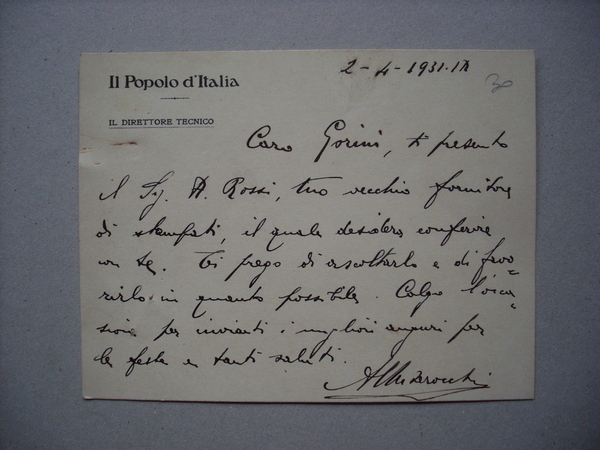 Il Popolo d'Italia
IL DIRETTORE TECNICO
2-4-1931.IX
30
Caro Gorini, ti presento
il Sig. A. Rossi, tuo vecchio fornitore
di stampati, il quale desidera conferire
con te. Ti prego di ascoltarlo e di favo=
rirlo in quanto possibile. Colgo l'occa=
sione per inviarti i migliori auguri per
le feste e tanti saluti.